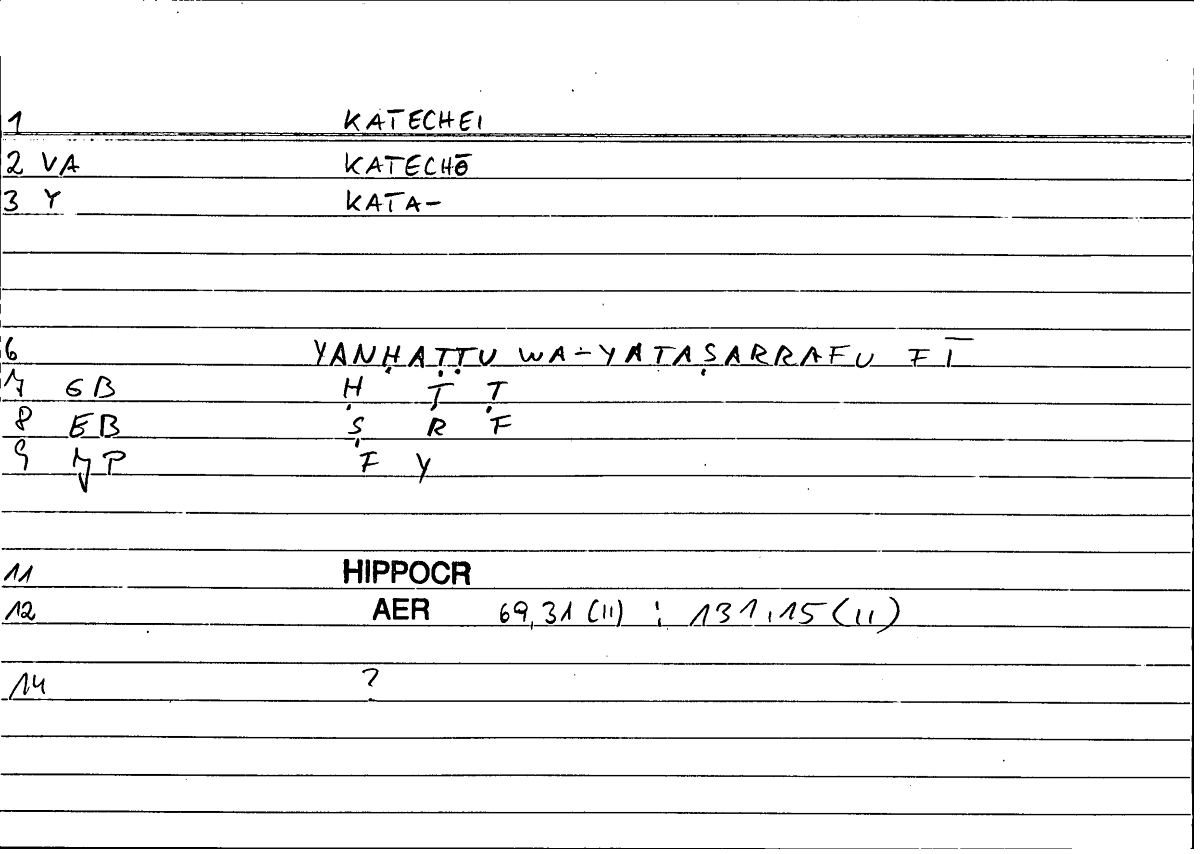 1 KATECHEI
2 VA KATECHŌ
3 Y KATA-
6 YANḤAṬṬU WA-YATAṢARRAFU FĪ
7 GB Ḥ Ṭ Ṭ
8 EB Ṣ R F
9 JP F Y
11 HIPPOCR
12 AER 69,31 (11) : 131,15 (11)
14 ?